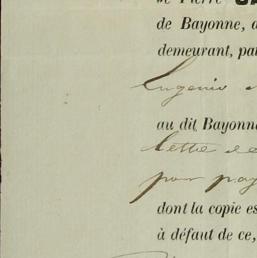 de Pierre
de Bayonne,
demeurant, pa
Eugenio
au dit Bayonne
lettre de
pour pay
dont la copie es
à défaut de ce,